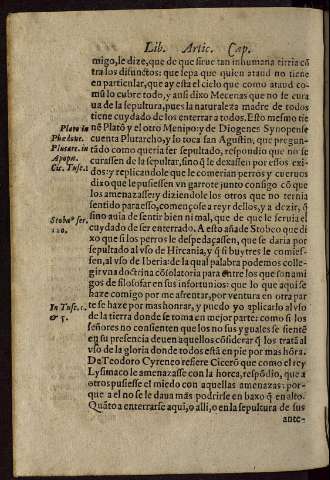 Lib. Artic. Cap.
migo, le dize, que de que sirue tan inhumana tirria cõ
tra los difunctos: que sepa que quien ataud no tiene
en particular, que ay esta el cielo que como ataud co-
mũ lo cubre todo, y ansi dixo Mecenas que no se cura
ua de la sepultura, pues la naturaleza madre de todos
tiene cuydado de los enterrar a todos. Esto mesmo tie
Plato in
nẽ Platõ y el otro Menipo: y de Diogenes Synopense
Phædone.
cuenta Plutarcho, y lo toca san Agustin, que pregun-
Plutarc. in
tado como queria ser sepultado, respondio que no se
Apoph.
curassen de la sepultar, sino q̃ le dexassen por essos exi-
Cic. Tusc. 1
dos: y replicandole que le comerian perros y cueruos
dixo que le pusiessen vn garrote junto consigo cõ que
los amenazasse: y diziendole los otros que no ternia
sentido para esso, començose a reyr dellos, y a dezir, q̃
Stobæ⁹ ser.
sino auia de sentir bien ni mal, que de que le seruia el
120.
cuydado de ser enterrado. A esto añade Stobeo que di
xo que si los perros le despedaçassen, que se daria por
sepultado al vso de Hircania, y q̃ si buytres le comies-
sen, al vso de Iberia: de la qual palabra podemos colle-
gir vna doctrina cõsolatoria para entre los que son ami
gos de filosofar en sus infortunios: que lo que aqui se
haze comigo por me afrentar, por ventura en otra par
In Tusc. 1.
te se haze por mas honrar, y puedo yo aplicarlo al vso
& 5.
de la tierra donde se toma en mejor parte: como si los
señores no consienten que los no sus yguales se sientẽ
en su presencia deuen aquellos cõsiderar q̃ los tratã al
vso de la gloria donde todos estã en pie por mas hõra.
De Teodoro Cyreneo refiere Cicerõ que como el rey
Lysimaco le amenazasse con la horca, respõdio, que a
otros pusiesse el miedo con aquellas amenazas: por-
que a el no se le daua màs podrirse en baxo q̃ en alto.
Quãto a enterrarse aqui, o alli, o en la sepultura de sus
ante-